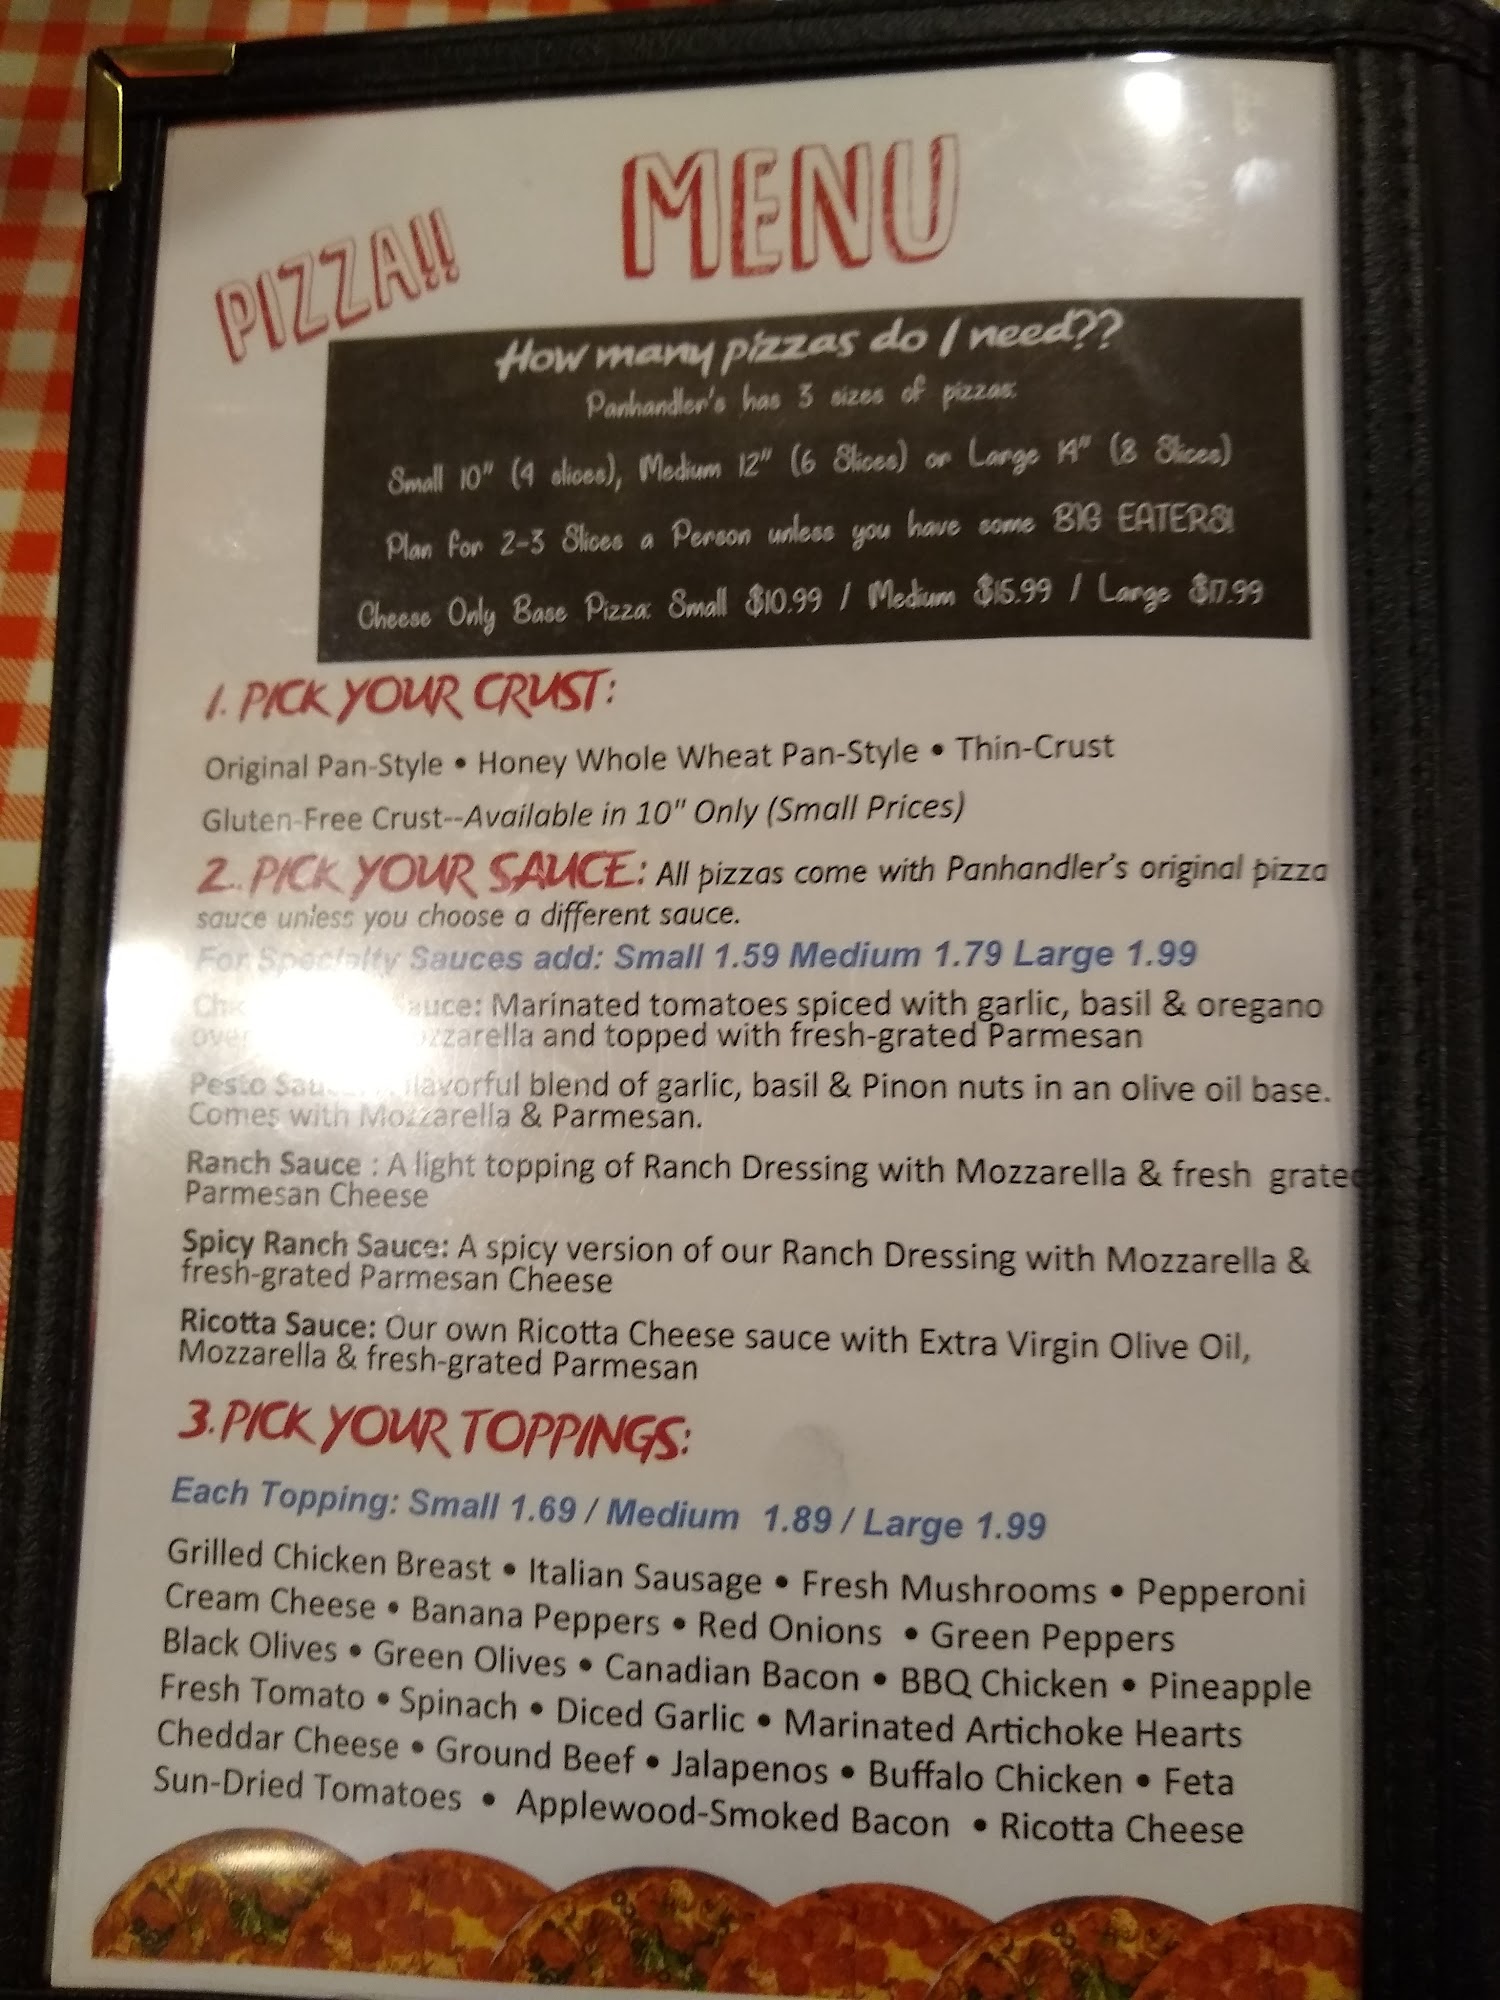 MENU
PIZZA!!
How many pizzas do I need??
Panhandler's has 3 sizes of pizzas:
Small 10" (4 slices), Medium 12" (6 Slices) or Large 14" (8 Slices)
Plan for 2-3 Slices a Person unless you have some BIG EATERS!
Cheese Only Base Pizza: Small $10.99 / Medium $15.99 / Large $17.99
1. PICK YOUR CRUST:
Original Pan-Style • Honey Whole Wheat Pan-Style • Thin-Crust
Gluten-Free Crust--Available in 10" Only (Small Prices)
2. PICK YOUR SAUCE: All pizzas come with Panhandler's original pizza
sauce unless you choose a different sauce.
For Specialty Sauces add: Small 1.59 Medium 1.79 Large 1.99
Sauce: Marinated tomatoes spiced with garlic, basil & oregano
over Mozzarella and topped with fresh-grated Parmesan
Pesto Sauce: A flavorful blend of garlic, basil & Pinon nuts in an olive oil base.
Comes with Mozzarella & Parmesan.
Ranch Sauce : A light topping of Ranch Dressing with Mozzarella & fresh grated
Parmesan Cheese
Spicy Ranch Sauce: A spicy version of our Ranch Dressing with Mozzarella &
fresh-grated Parmesan Cheese
Ricotta Sauce: Our own Ricotta Cheese sauce with Extra Virgin Olive Oil,
Mozzarella & fresh-grated Parmesan
3. PICK YOUR TOPPINGS:
Each Topping: Small 1.69 / Medium 1.89 / Large 1.99
Grilled Chicken Breast • Italian Sausage • Fresh Mushrooms • Pepperoni
Cream Cheese • Banana Peppers • Red Onions • Green Peppers
Black Olives • Green Olives • Canadian Bacon • BBQ Chicken • Pineapple
Fresh Tomato • Spinach • Diced Garlic • Marinated Artichoke Hearts
Cheddar Cheese • Ground Beef • Jalapenos • Buffalo Chicken • Feta
Sun-Dried Tomatoes • Applewood-Smoked Bacon • Ricotta Cheese